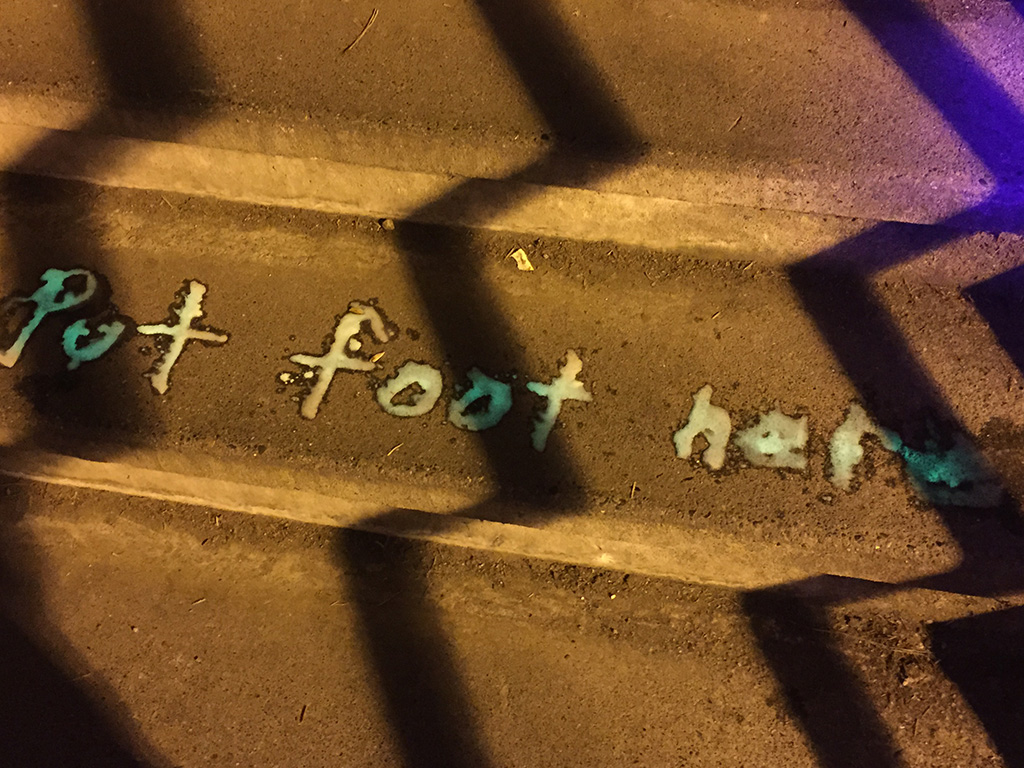 Put foot here